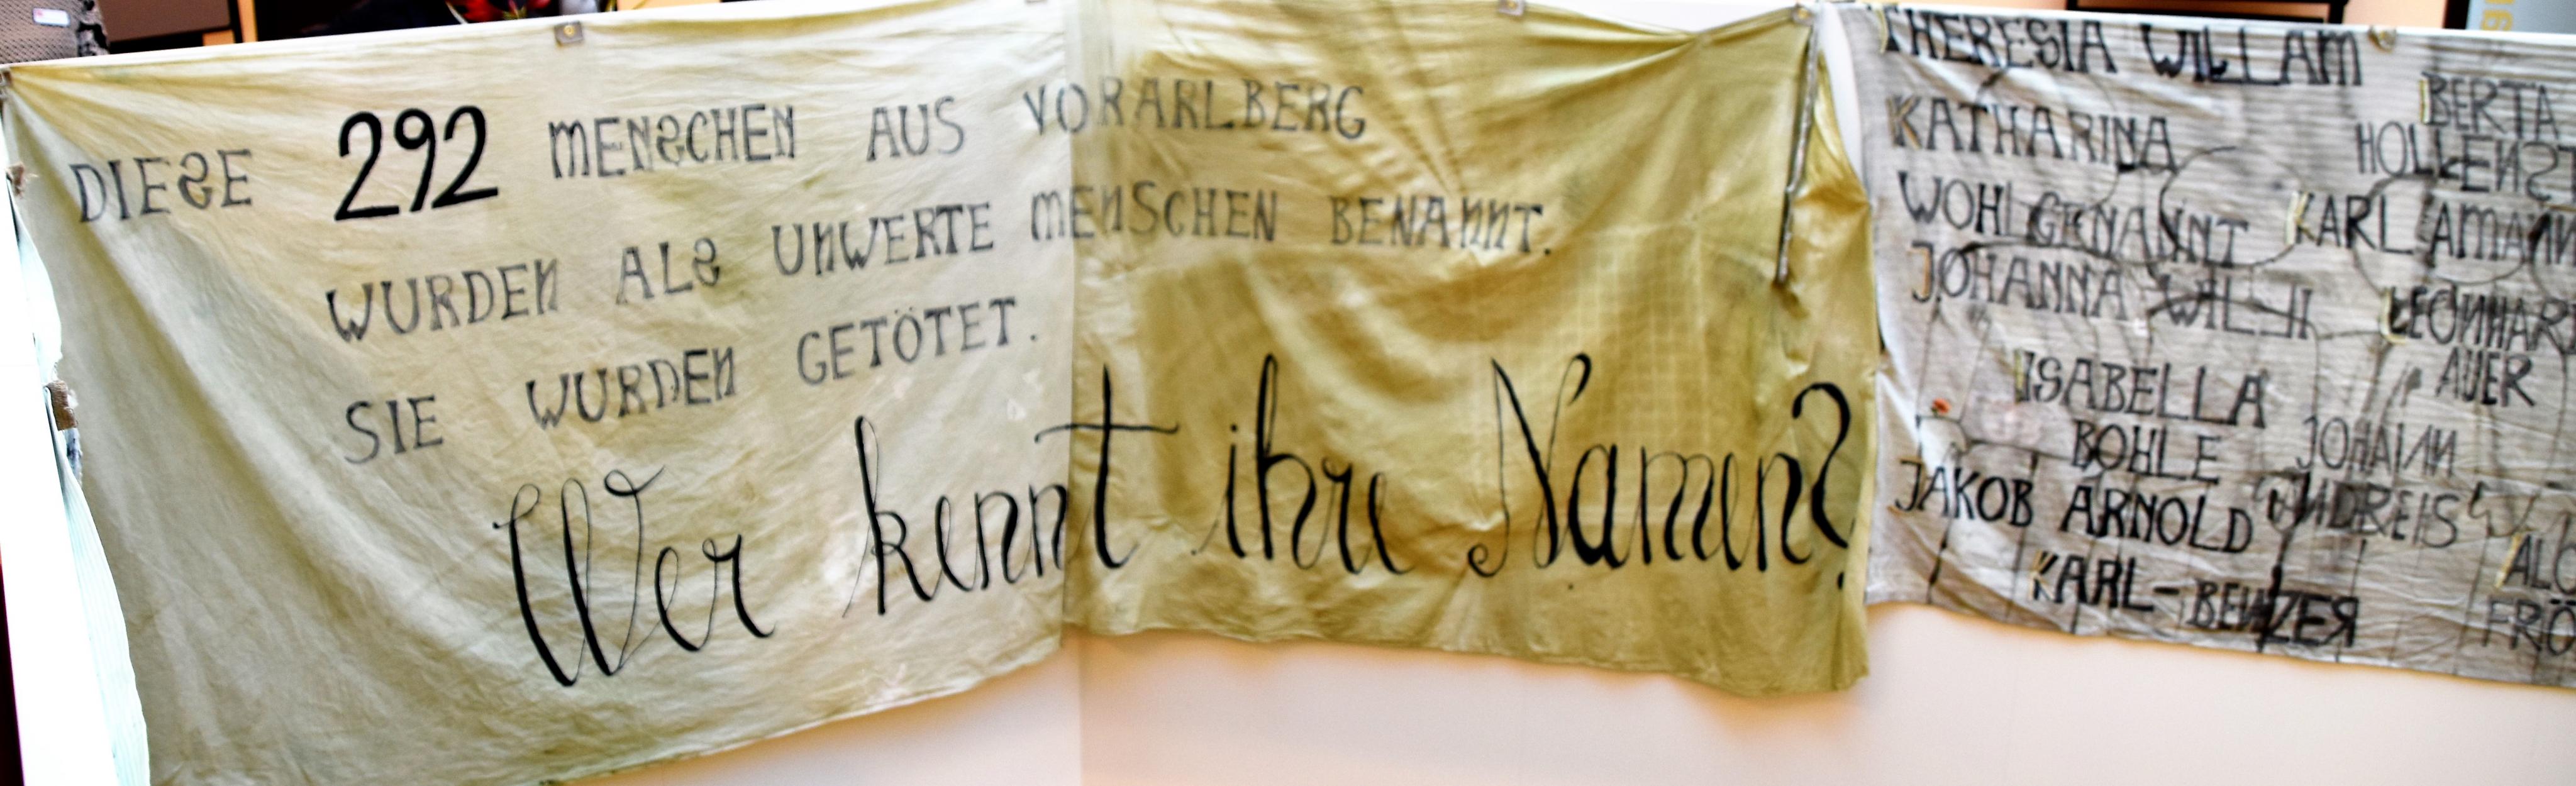 DIESE 292 MENSCHEN AUS VORARLBERG
WURDEN ALS UNWERTE MENSCHEN BENANNT.
SIE WURDEN GETÖTET.
Wer kennt ihre Namen?
THERESIA WILLAM
BERTA
KATHARINA
WOHLGENANNT
KARL AMANN
JOHANNA
ISABELLA
BOHLE
AUER
JOHANN
JAKOB ARNOLD
ANDREIS
KARL-BENZER